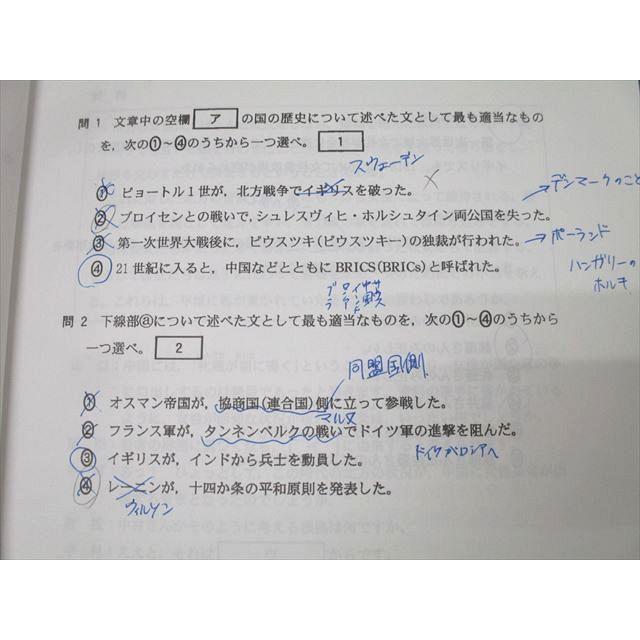 問1 文章中の空欄 ア の国の歴史について述べた文として最も適当なもの
を,次の①~④のうちから一つ選べ。 1
スウェーデン
① ピョートル1世が,北方戦争でイギリスを破った。 ×
→デンマークのこと
② プロイセンとの戦いで,シュレスヴィヒ・ホルシュタイン両公国を失った。
③ 第一次世界大戦後に,ピウスツキ(ピウスツキー)の独裁が行われた。 →ポーランド
④ 21世紀に入ると,中国などとともにBRICS(BRICs)と呼ばれた。
ハンガリーの
ホルチ
ブラ ロシア インド 中
問2 下線部ⓐについて述べた文として最も適当なものを,次の①~④のうちから
一つ選べ。 2
同盟国側
① オスマン帝国が,協商国(連合国)側に立って参戦した。
マルヌ
② フランス軍が,タンネンベルクの戦いでドイツ軍の進撃を阻んだ。
ドイツがロシアへ
③ イギリスが,インドから兵士を動員した。
④ レーニンが,十四か条の平和原則を発表した。
ウィルソン